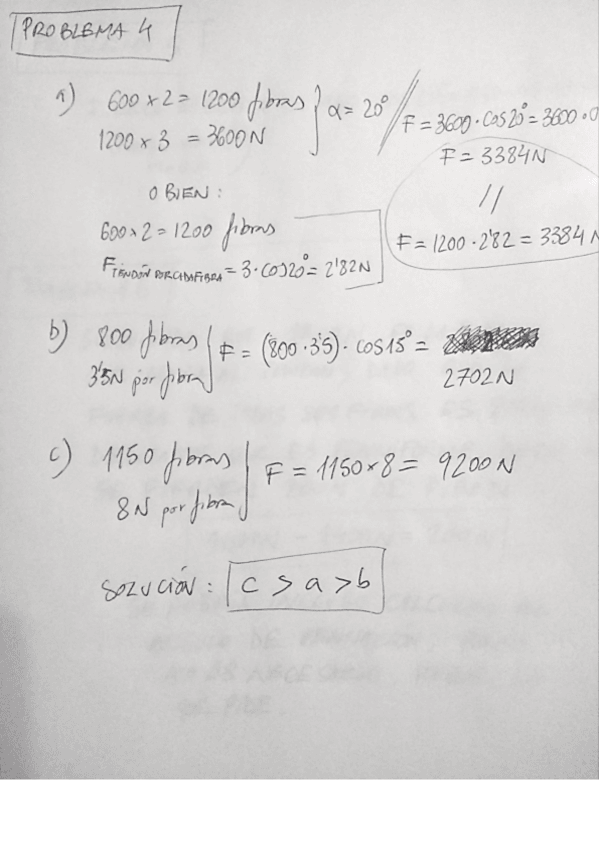 PROBLEMA 4
a) 600 x 2 = 1200 fibras
1200 x 3 = 3600N
α = 20°
F = 3600 · cos20° = 3600 · 0
F = 3384N
O BIEN:
600 x 2 = 1200 fibras
F TENDÓN POR CADA FIBRA = 3 · cos20° = 2'82N
//
F = 1200 · 2'82 = 3384 N
b) 800 fibras
3'5N por fibra
F = (800 · 3'5) · cos15° =
2702N
c) 1150 fibras
8N por fibra
F = 1150 x 8 = 9200N
SOLUCIÓN: c > a > b